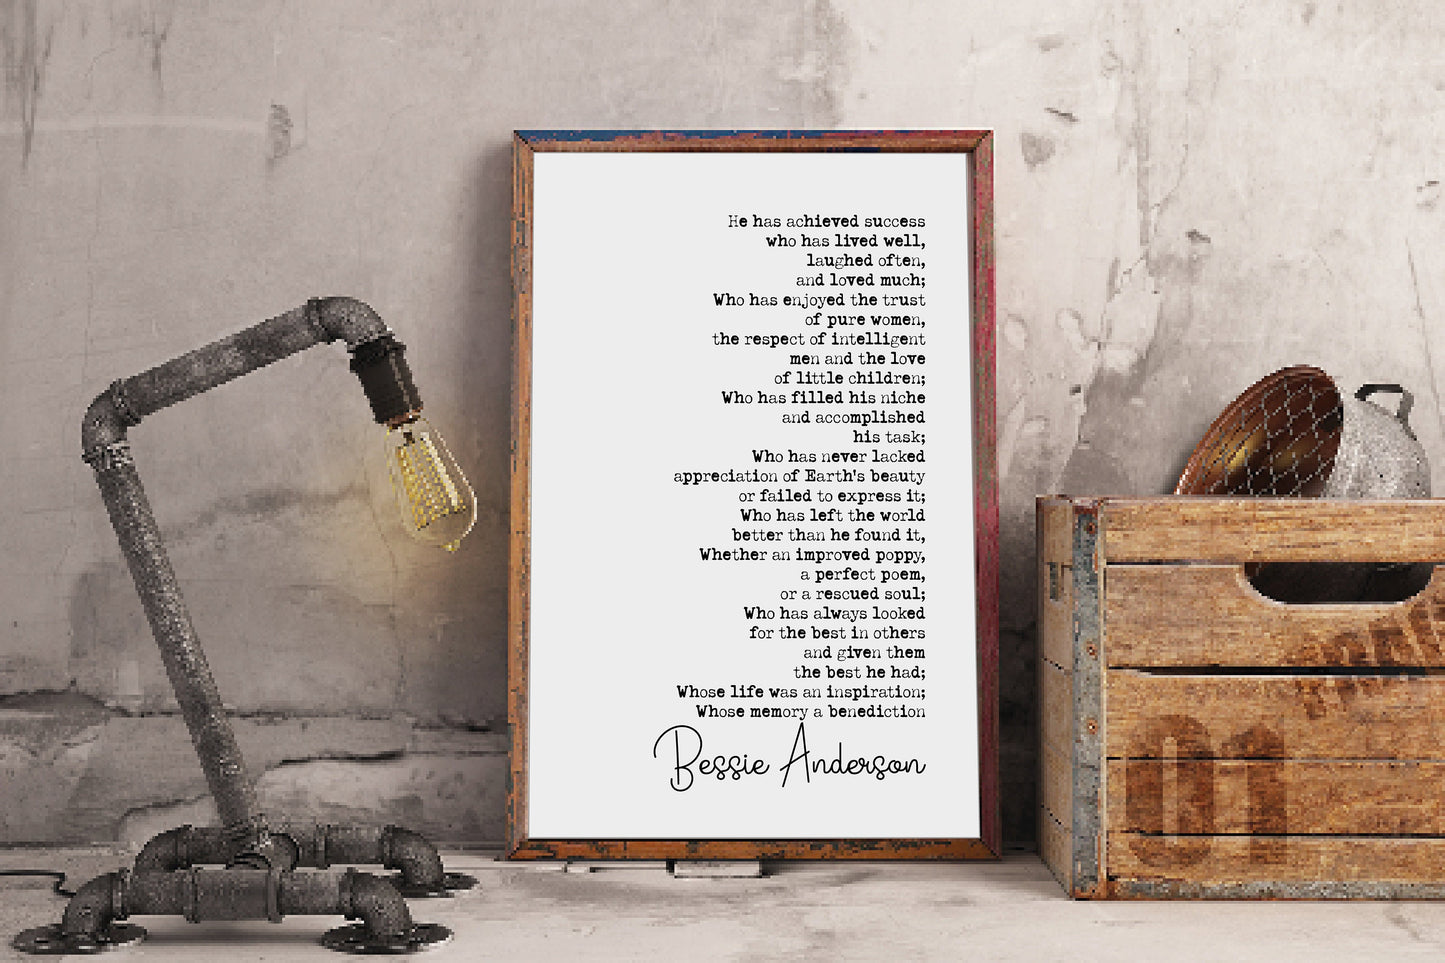 He has achieved success
who has lived well,
laughed often,
and loved much;
Who has enjoyed the trust
of pure women,
the respect of intelligent
men and the love
of little children;
Who has filled his niche
and accomplished
his task;
Who has never lacked
appreciation of Earth's beauty
or failed to express it;
Who has left the world
better than he found it,
Whether an improved poppy,
a perfect poem,
or a rescued soul;
Who has always looked
for the best in others
and given them
the best he had;
Whose life was an inspiration;
Whose memory a benediction
Bessie Anderson
01